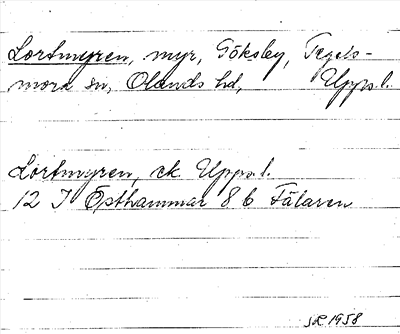 Lortmyren, myr, Göksby, Tegels-
mora sn, Olands hd, Upps.l.
Lortmyren, ek Upps.l.
12 I Östhammar 8 b Fälaren
1958